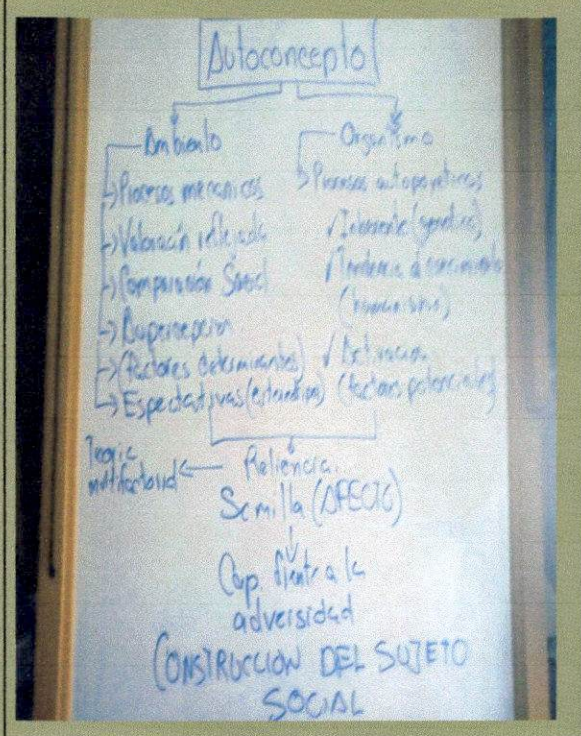 Autoconcepto
Ambiento
-> Procesos mecanicos
-> Valoración reflejada
-> Comparación Social
->
-> (factores determinantes)
-> Espectativas (estereotipos)
Organismo
-> Procesos autopoyeticos
✓ Inherente (genetico)
✓ Tendencia a crecimiento
(humanismo)
✓ Activacion
(factores potenciales)
Teoria
multifactorial <- Reliencia
Semilla (AFECTO)
Cap. frente a la
adversidad
CONSTRUCCION DEL SUJETO
SOCIAL